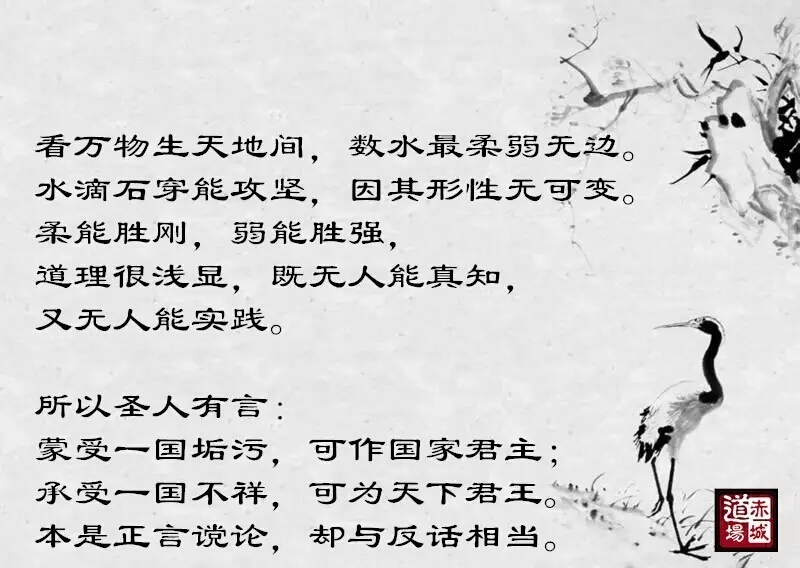 看万物生天地间，数水最柔弱无边。
水滴石穿能攻坚，因其形性无可变。
柔能胜刚，弱能胜强，
道理很浅显，既无人能真知，
又无人能实践。
所以圣人有言：
蒙受一国垢污，可作国家君主；
承受一国不祥，可为天下君王。
本是正言谠论，却与反话相当。
赤城
道場